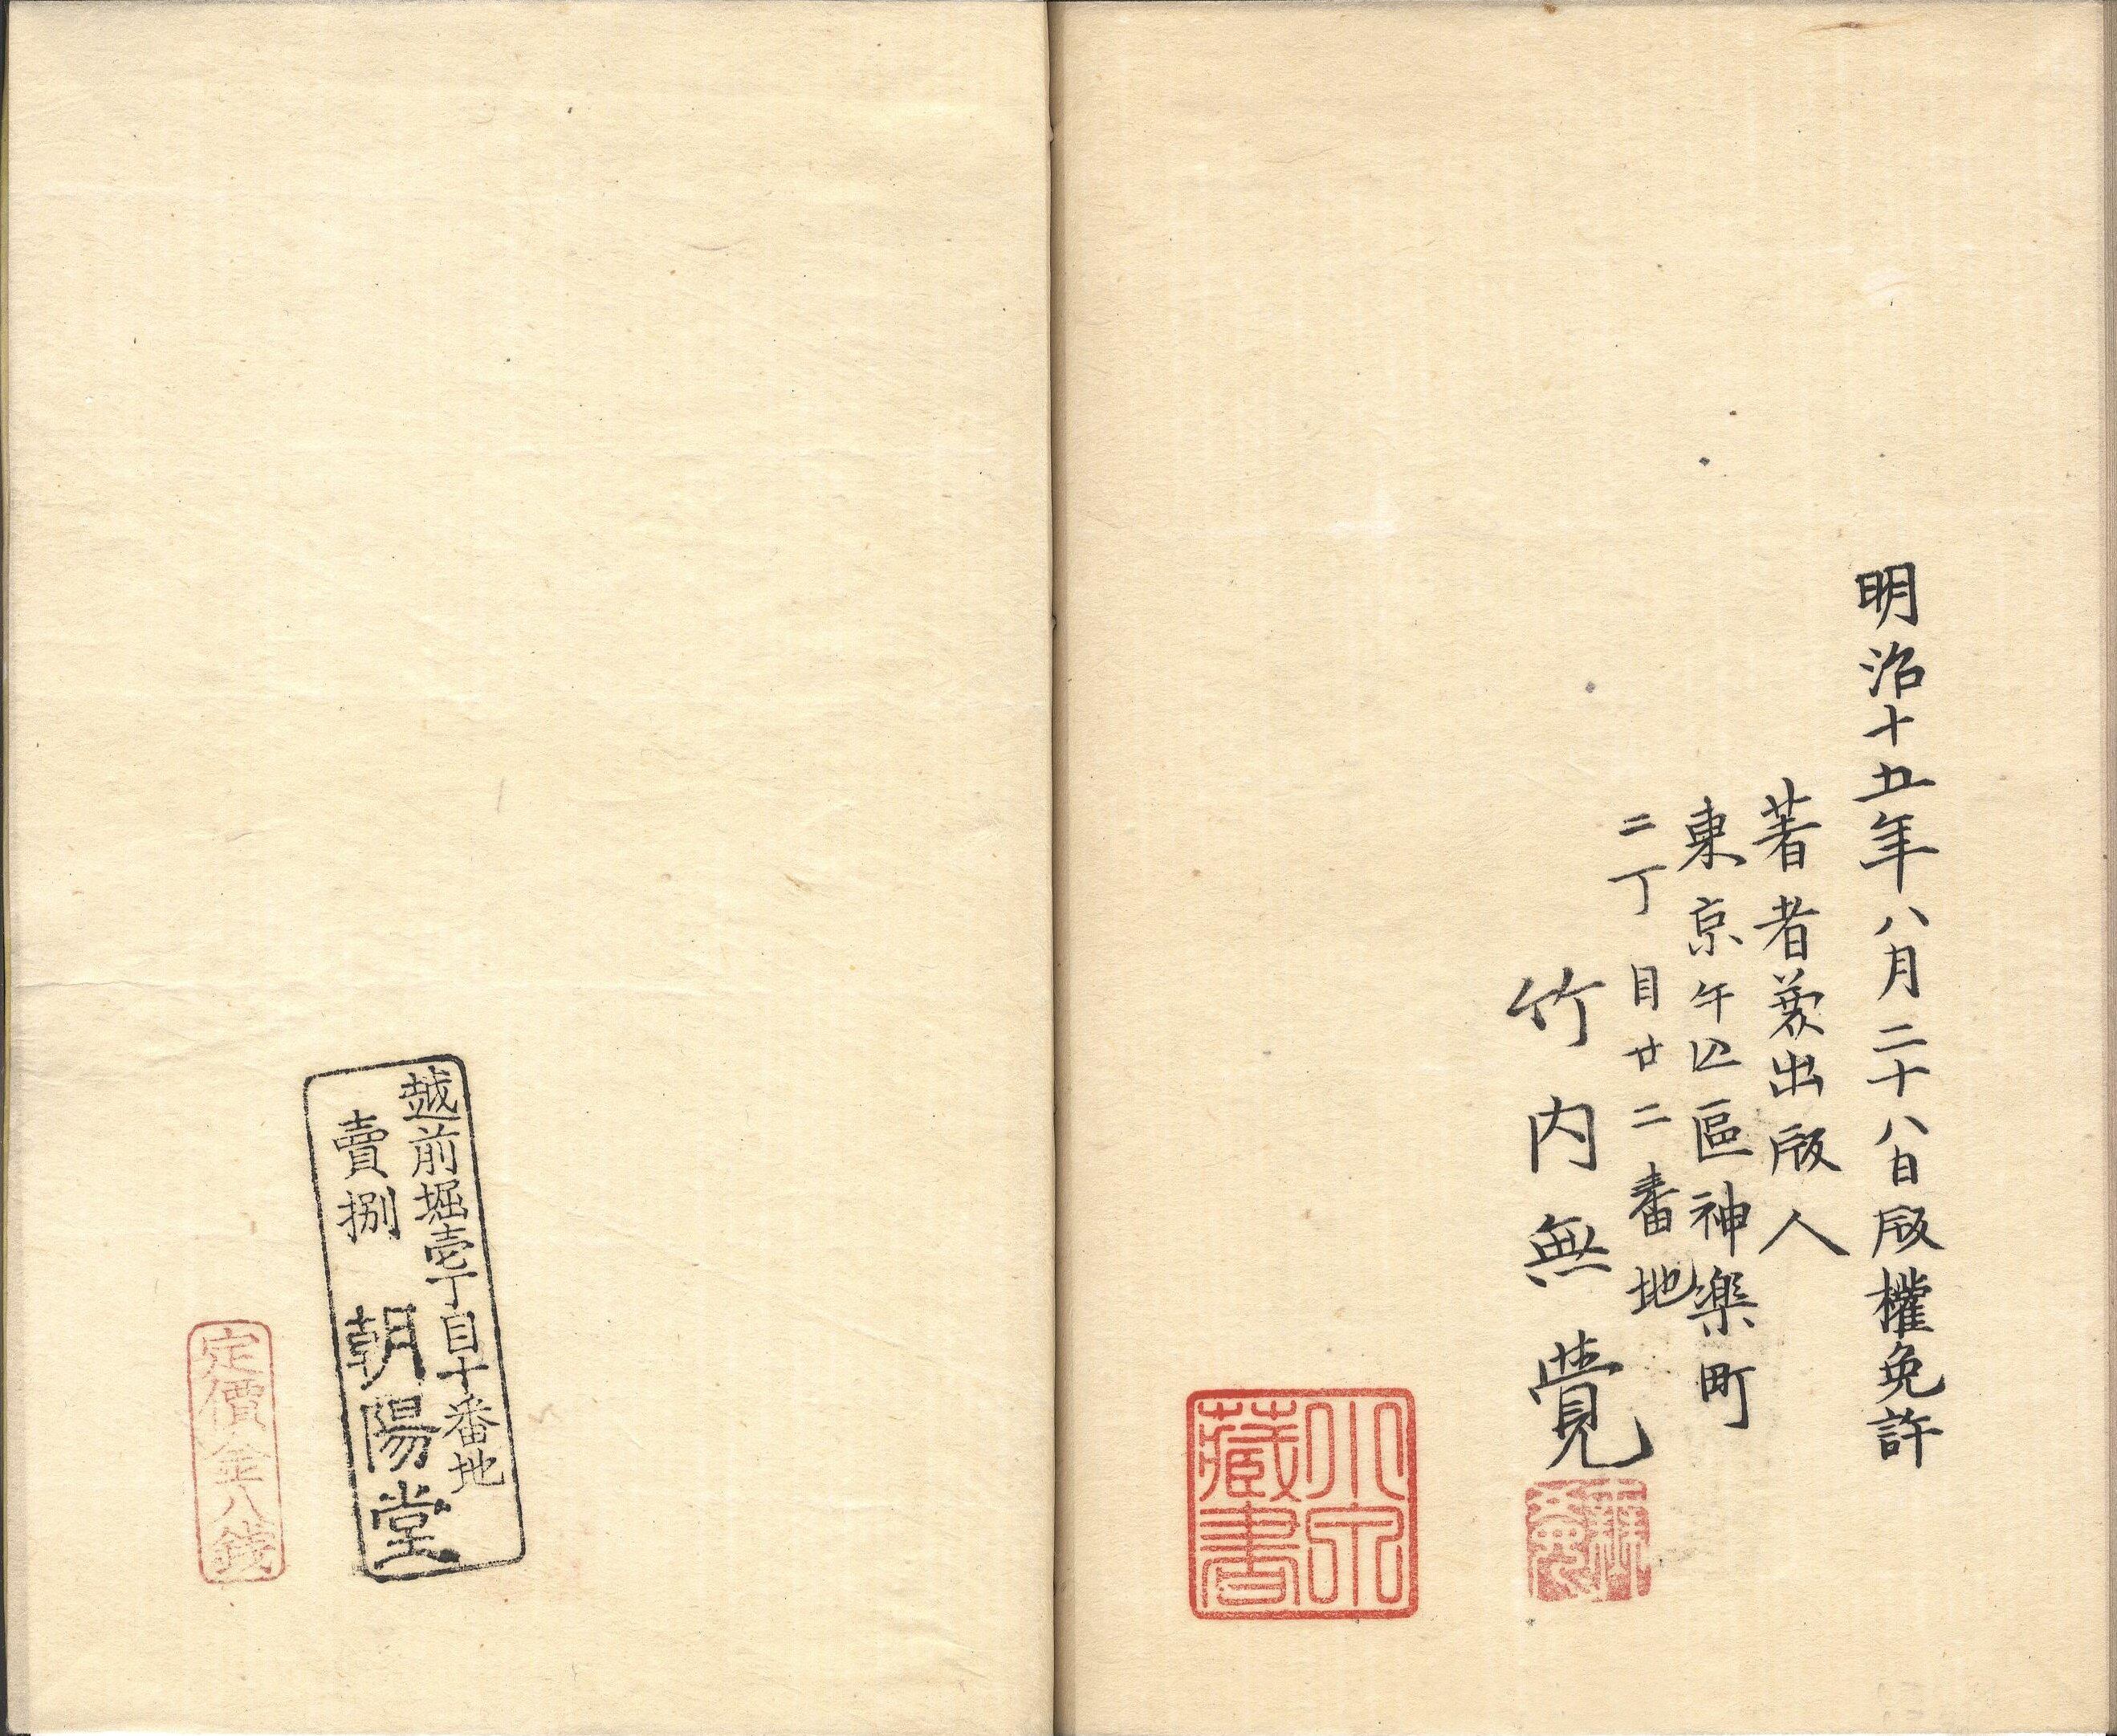 明治十五年八月二十八日版權免許
著者蒹出版人
東京牛込區神樂町
二丁目廿二番地
竹内無覺
小宗
藏書
越前堀壱丁目十番地
賣捌 朝陽堂
定價金八銭